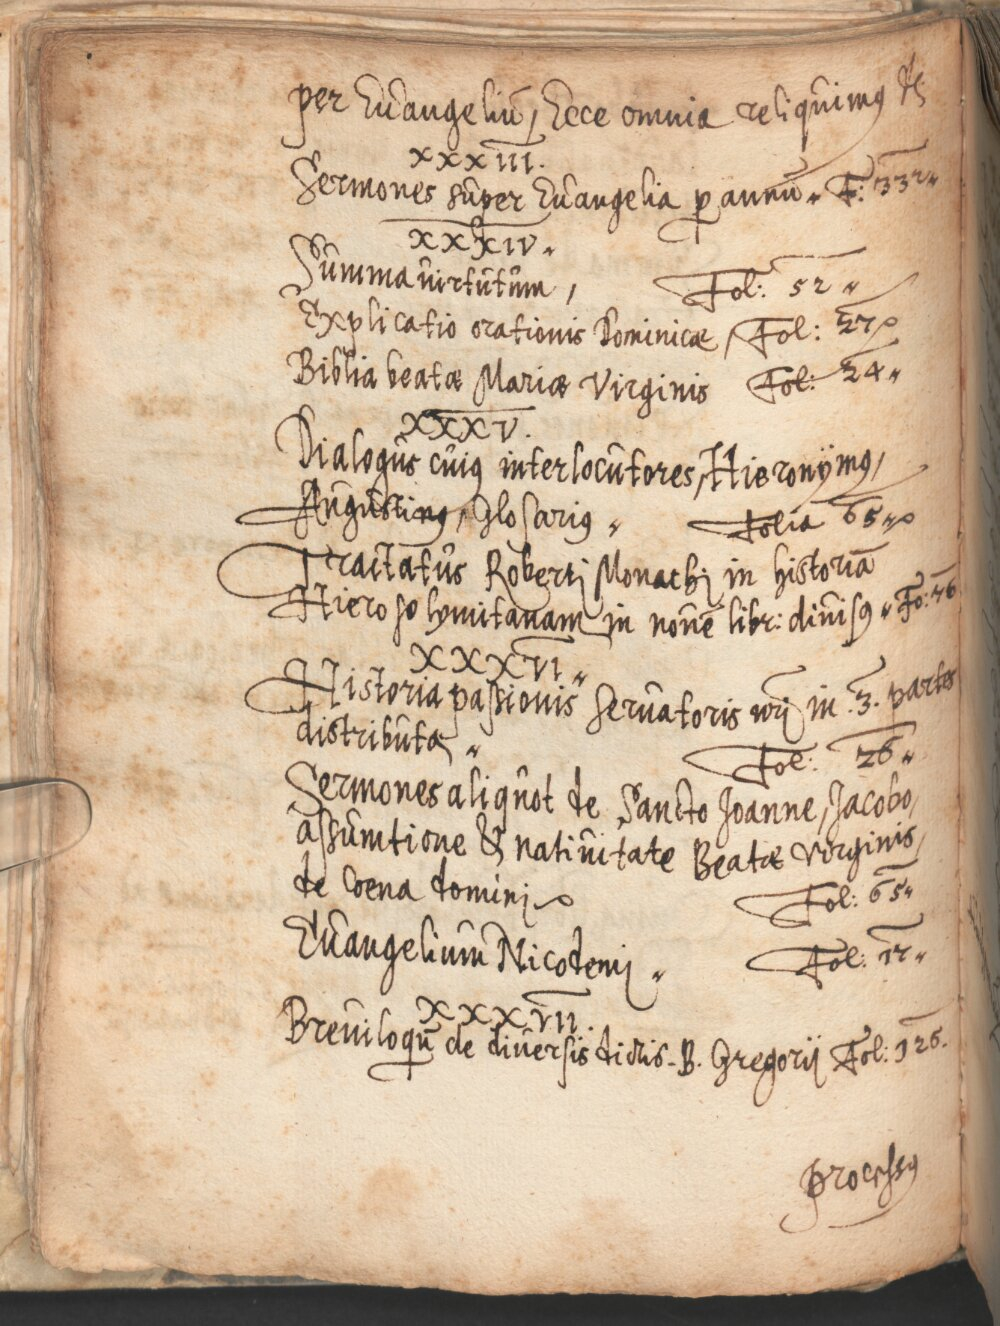 per Euangeliũ, Ecce omnia reliquimꝰ &c
XXXIII.
Sermones super Euangelia ꝑ annũ F: 332
XXXIV
Summa uirtutum, Fol: 52
Explicatio orationis Dominicæ, Fol: 27
Biblia beatæ Mariæ Virginis Fol: 24
XXXV.
Dialogus cuiꝰ interlocutores, Hieronÿmꝰ,
Augustinꝰ, Glosariꝰ Folia 65
Tractatus Robertj Monachj in historiã
Hierosolymitanam in nonẽ libr: diuisꝰ Fo: 76
XXXVI
Historia passionis Seruatoris nr̃j in .3. partes
distributa Fol: 26
Sermones aliquot de Sancto Joanne, Jacobo,
assumtione & natiuitate Beatæ Virginis,
de Coena dominj Fol: 65
Euangelium Nicodemj Fol: 17
XXXVII.
Breuiloquũ de diuersis dictis B. Gregorij Fol: 126.
Processꝰ